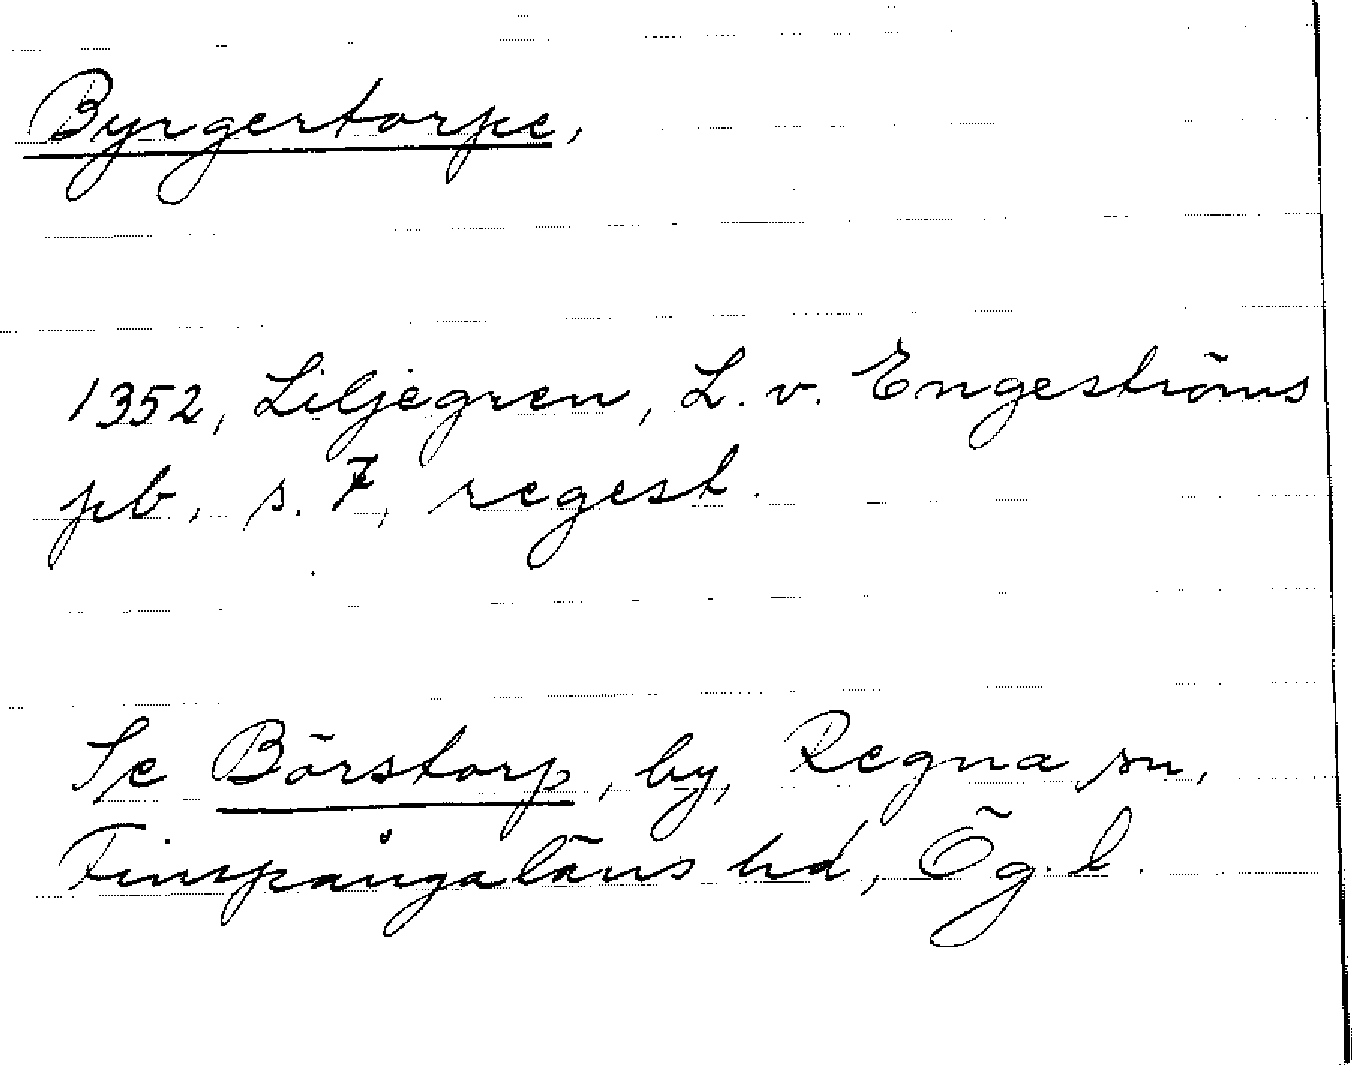 Byrgertorpe,
1352, Liljegren, L. v. Engeströms
pb, s. 7, regest.
Se Börstorp, by, Regna sn,
Finspångaläns hd, Ög. l.